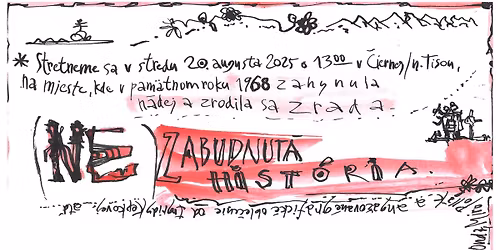 * Stretneme sa v stredu 20. augusta 2025 o 13 00 v Čiernej/n. Tisou,
na mieste, kde v pamätnom roku 1968 zahynula
nádej a zrodila sa zrada.
(NE) ZABUDNUTÁ
HISTÓRIA.
angažované grafické oblečenie od Ingridy